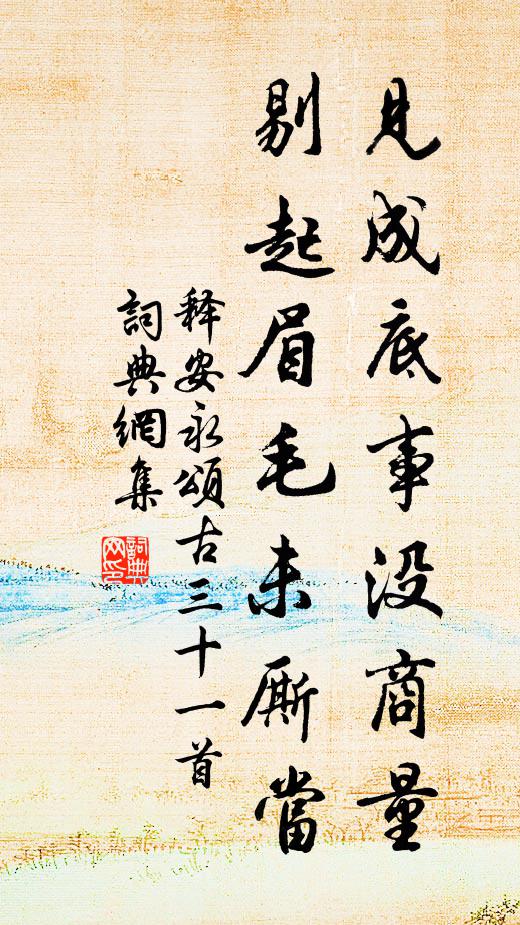 見成底事没商量
剔起眉毛未厮當
释安永頌古三十一首
詞典網集
詞典网印